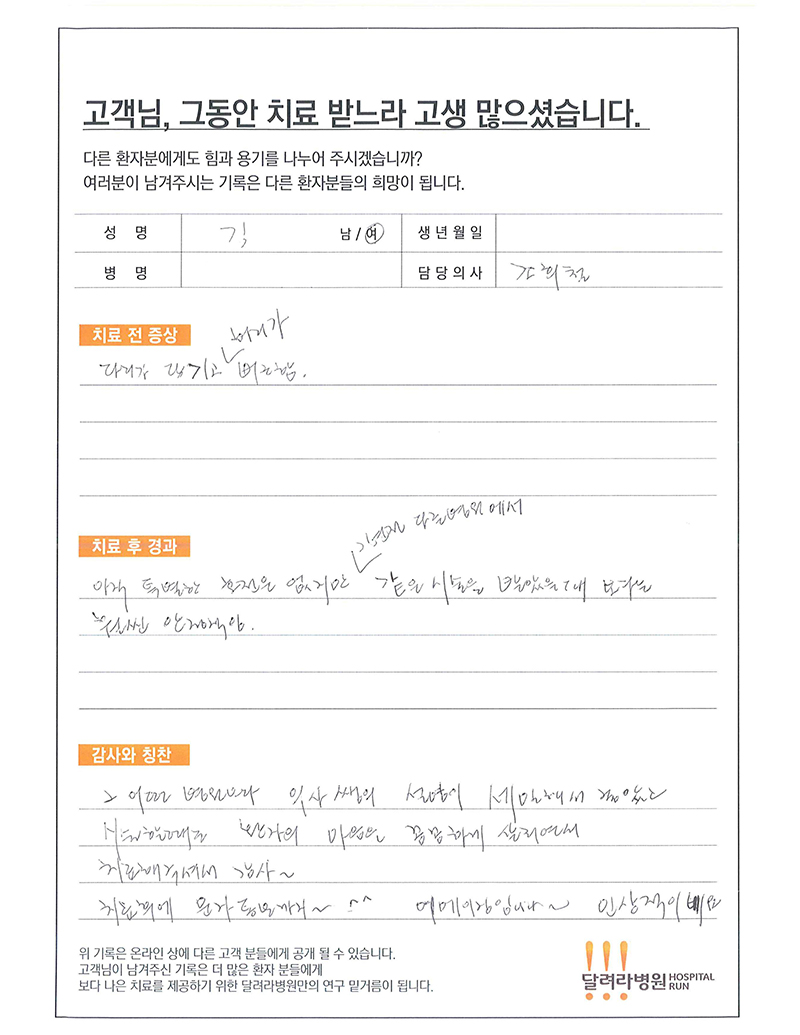 고객님, 그동안 치료 받느라 고생 많으셨습니다.
다른 환자분에게도 힘과 용기를 나누어 주시겠습니까?
여러분이 남겨주시는 기록은 다른 환자분들의 희망이 됩니다.
성 명 김 남 / 여 생년월일
병 명 담당의사 조희철
치료 전 증상
허리가
다리가 당기고 뻐근함.
치료 후 경과
다른병원에서
아직 특별한 호전은 없지만 같은 시술을 받았을때 보다는
훨씬
감사와 칭찬
그 어떤 병원보다 의사 쌤의 설명이 세밀해서 좋았고
환자의 마음을 꼼꼼하게 살피여서
치료해주셔서 감사~
치료회에 문자 ~ ^^ 입니다~ 인상적이예요
위 기록은 온라인 상에 다른 고객 분들에게 공개 될 수 있습니다.
고객님이 남겨주신 기록은 더 많은 환자 분들에게
보다 나은 치료를 제공하기 위한 달려라병원만의 연구 밑거름이 됩니다.
달려라병원 HOSPITAL RUN